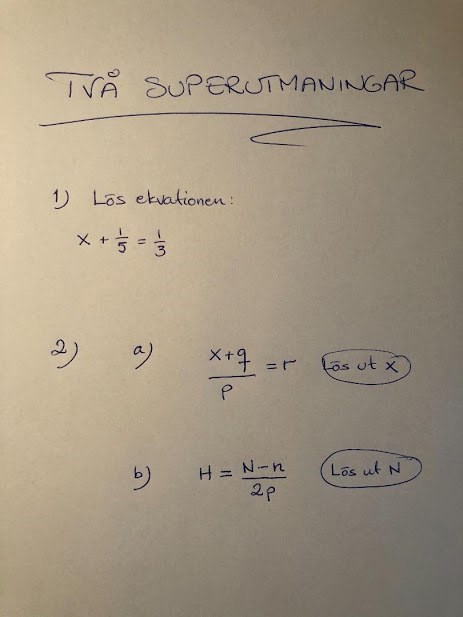 TVÅ SUPERUTMANINGAR
1) Lös ekvationen:
x + 1/5 = 1/3
2) a) (x+q)/p = r Lös ut x
b) H = (N-n)/2p Lös ut N